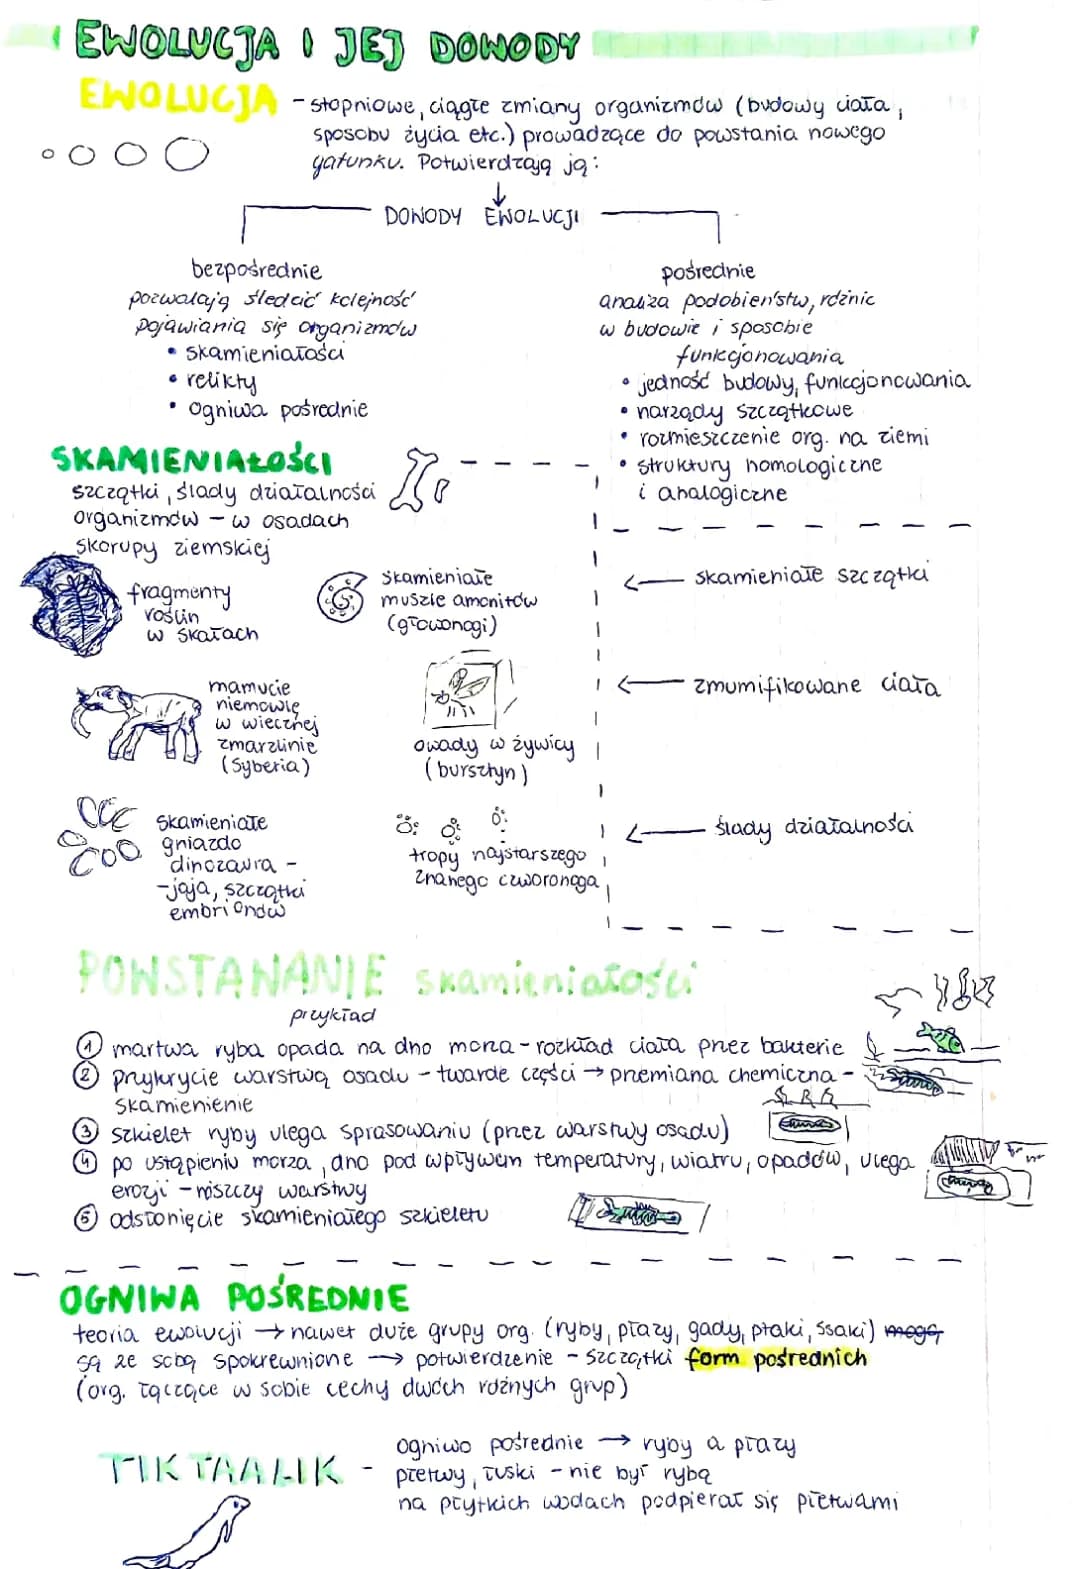 EWOLUCJA I JEJ DOWODY
EWOLUCJA - stopniowe, ciągłe zmiany organizmów (budowy ciała,
sposobu życia etc.) prowadzące do powstania nowego
gatunku. Potwierdzają ją:
↓
DOWODY EWOLUCJI
bezpośrednie
pozwalają śledzić kolejność
pojawiania się organizmów
• skamieniałości
• relikty
• ogniwa pośrednie
pośrednie
analiza podobieństw, różnic
w budowie i sposobie
funkcjonowania
• jedność budowy, funkcjonowania
• narządy szczątkowe
• rozmieszczenie org. na ziemi
• struktury homologiczne
i analogiczne
SKAMIENIAŁOŚCI
szczątki, ślady działalności
organizmów - w osadach
skorupy ziemskiej
fragmenty
roślin
w skałach
skamieniałe
muszle amonitów
(głowonogi)
← skamieniałe szczątki
mamucie
niemowlę
w wiecznej
zmarzlinie
(Syberia)
owady w żywicy
(bursztyn)
← zmumifikowane ciała
skamieniałe
gniazdo
dinozaura -
- jaja, szczątki
embrionów
tropy najstarszego
znanego czworonoga
← ślady działalności
POWSTANANIE skamieniałości
przykład
1 martwa ryba opada na dno morza - rozkład ciała przez bakterie
2 przykrycie warstwą osadu - twarde części → przemiana chemiczna -
skamienienie
3 szkielet ryby ulega sprasowaniu (przez warstwy osadu)
4 po ustąpieniu morza, dno pod wpływem temperatury, wiatru, opadów, ulega
erozji - niszczy warstwy
5 odsłonięcie skamieniałego szkieletu
OGNIWA POŚREDNIE
teoria ewolucji → nawet duże grupy org. (ryby, płazy, gady, ptaki, ssaki) mogą
są ze sobą spokrewnione → potwierdzenie - szczątki form pośrednich
(org. łączące w sobie cechy dwóch różnych grup)
TIKTAALIK -
ogniwo pośrednie → ryby a płazy
płetwy, łuski - nie był rybą
na płytkich wodach podpierał się płetwami